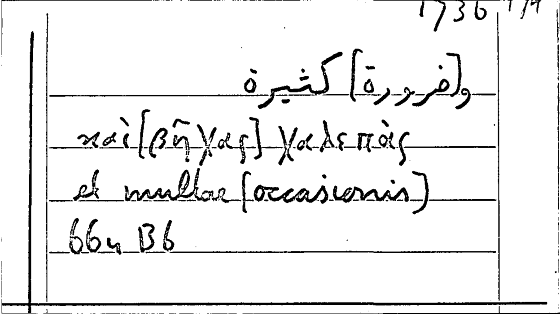 1736
و[ضرورة] كثيرة
καὶ [βῆχας] χαλεπὰς
et multae [occasionis]
B6